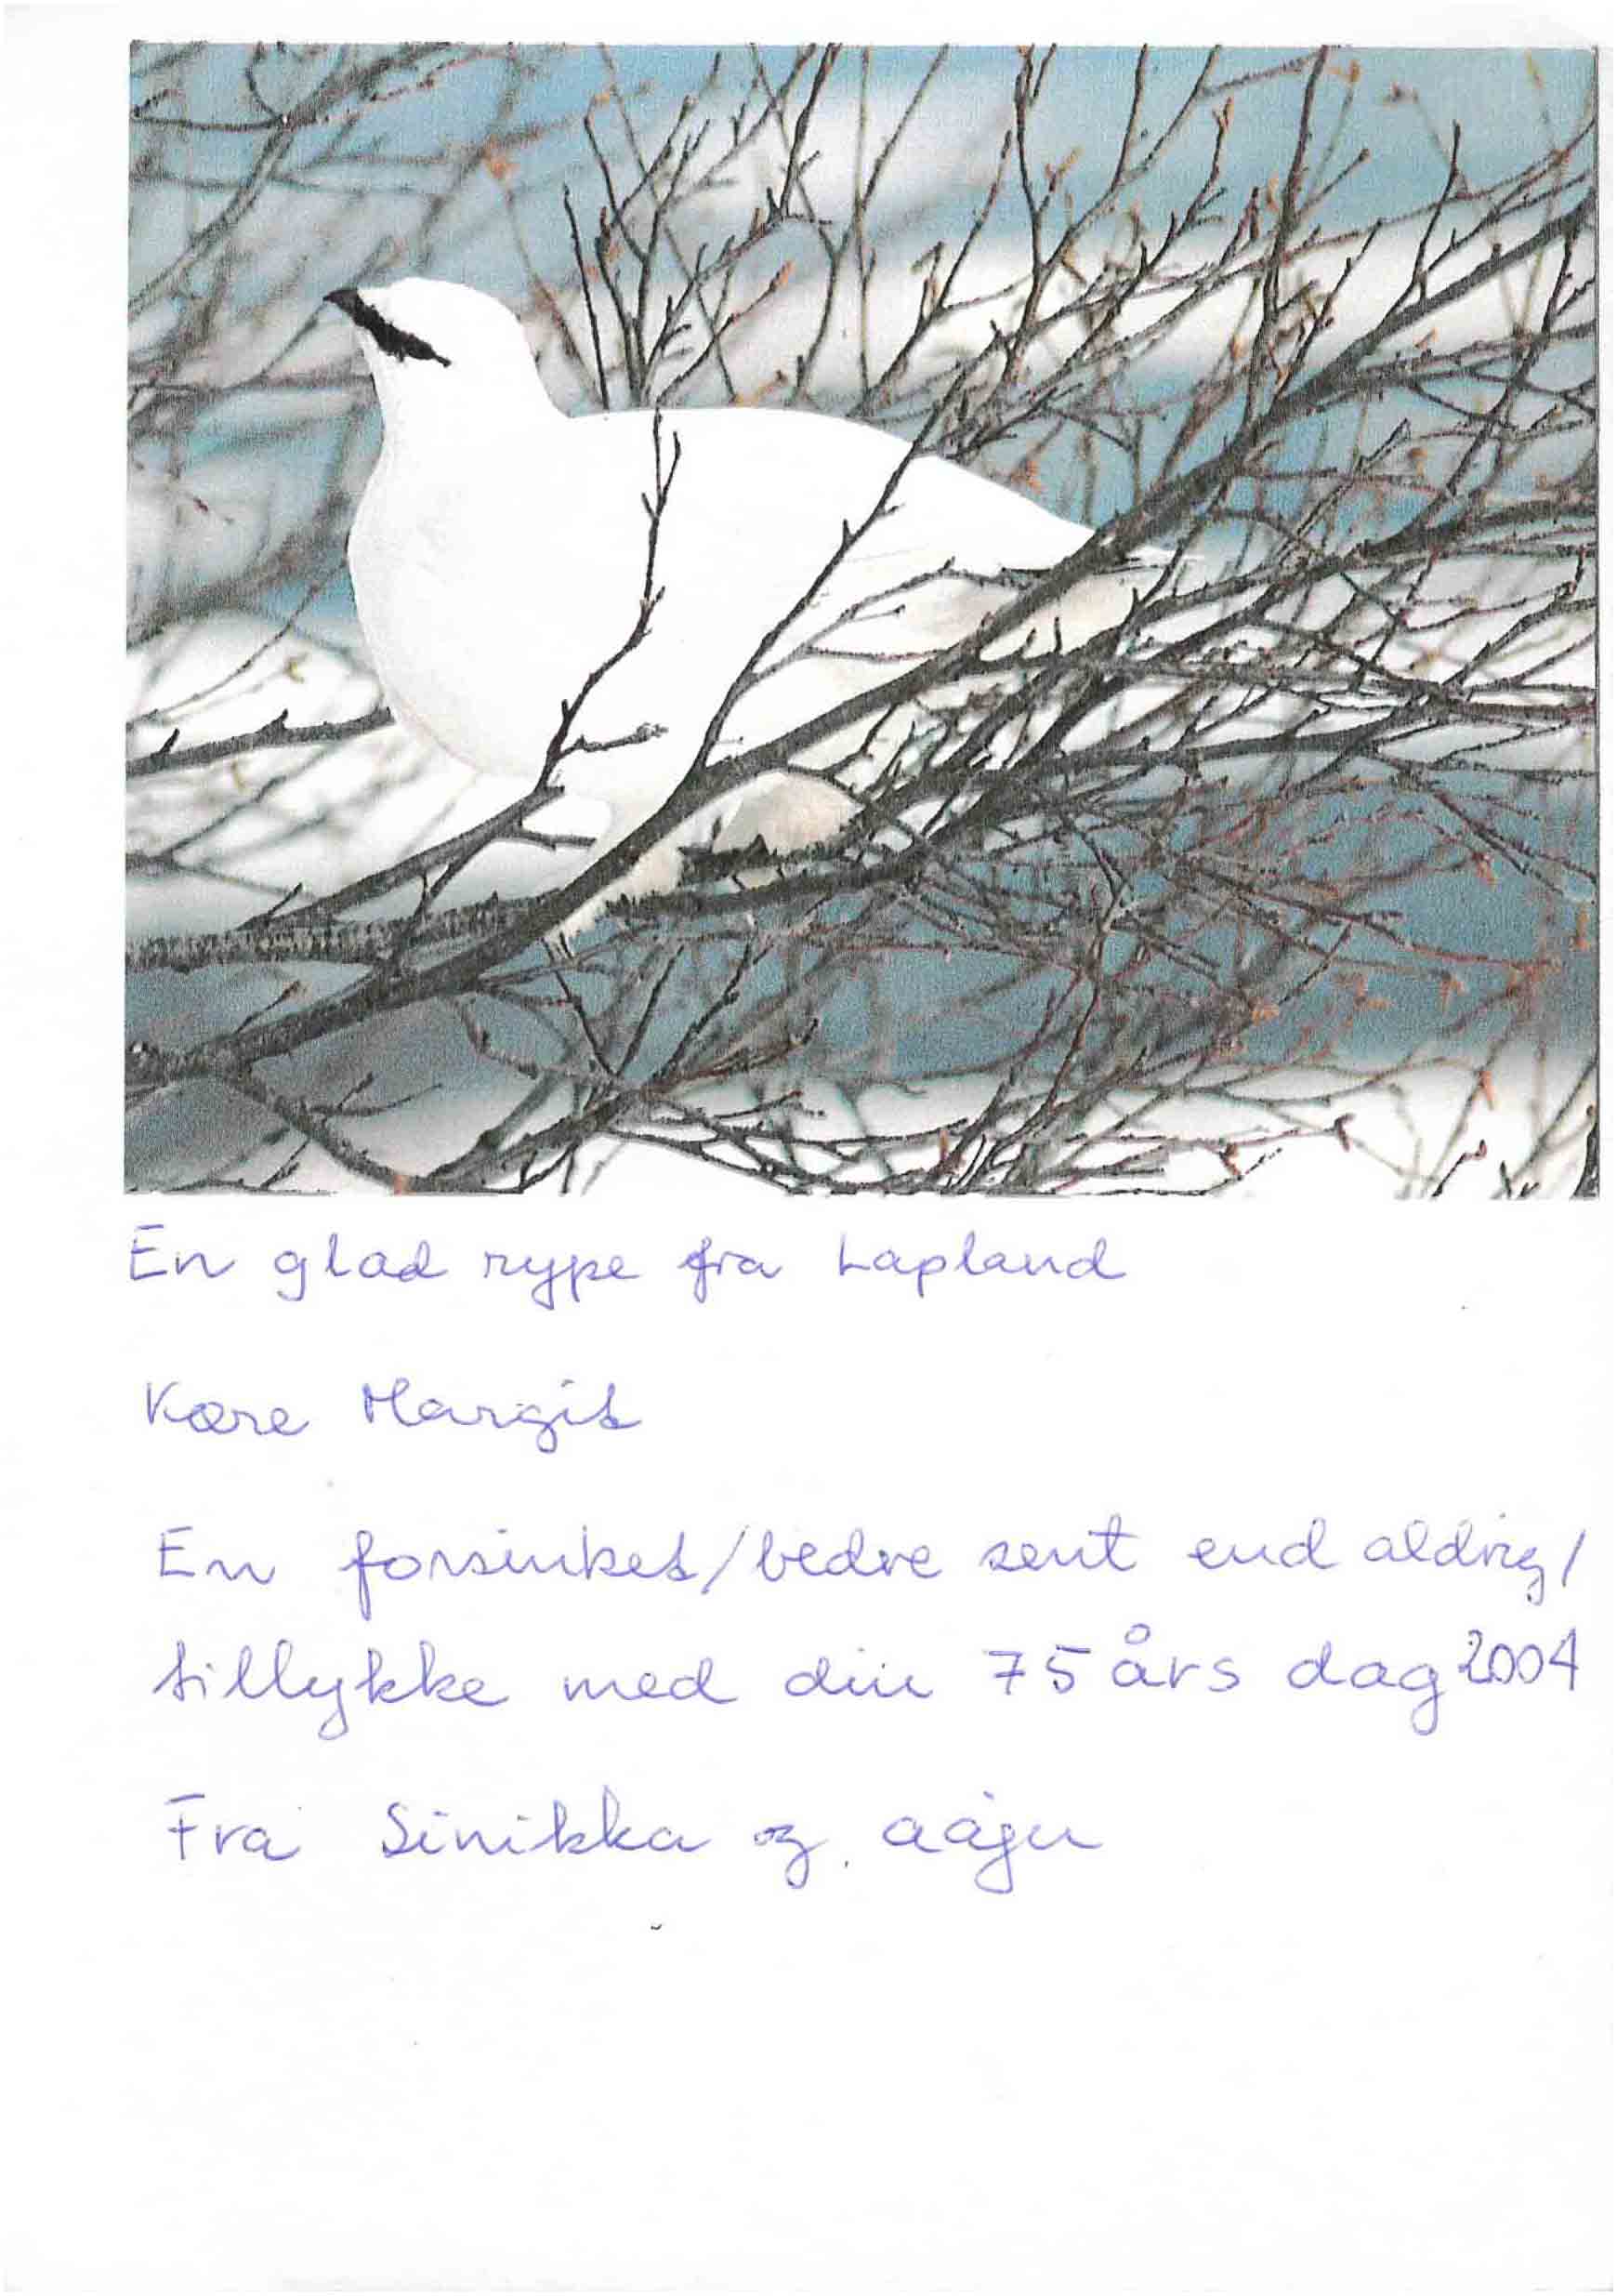 En glad rype fra Lapland
Kære Margit
En forsinket/bedre sent end aldrig/
tillykke med din 75 års dag 2004
Fra Sinikka og